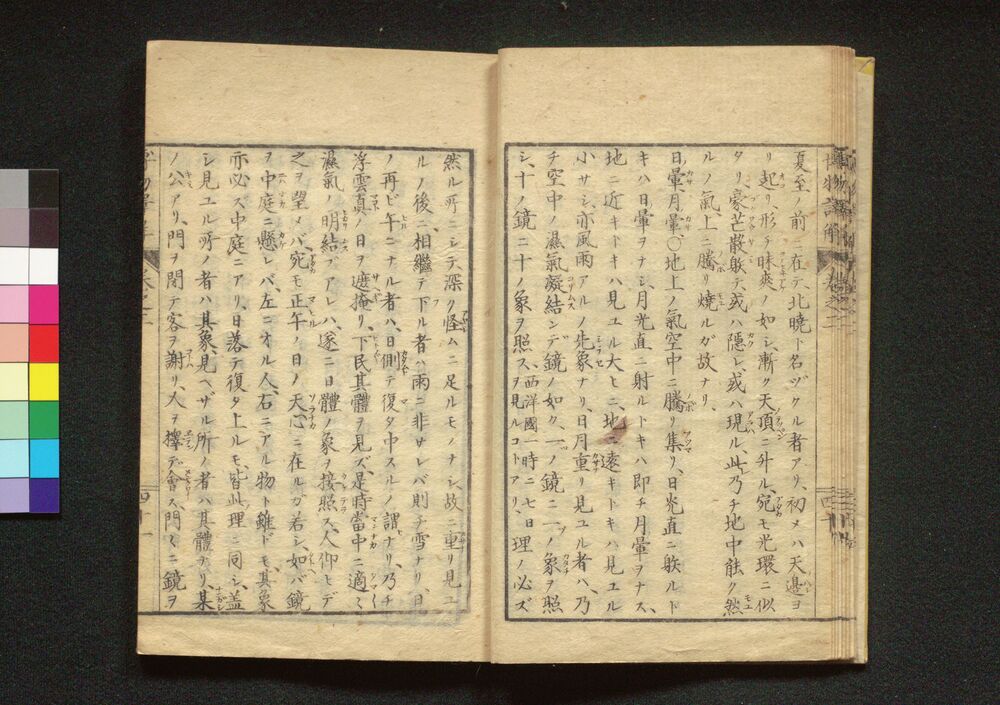 夏至ノ前ニ在テ、北曉ト名ヅクル者アリ、初メハ天邊ヨ
リ起リ、形チ昧爽ノ如シ、漸ク天頂ニ升ル、宛モ光環ニ似
タリ、豪芒散䠶テ、或ハ隱レ、或ハ現ル、此乃チ地中能ク然
ルノ氣、上ニ騰リ燒ルガ故ナリ、
日暈月暈〇地上ノ氣空中ニ騰リ集リ、日光直ニ䠶ルト
キハ日暈ヲナシ、月光直ニ射ルトキハ即チ月暈ヲナス、
地ニ近キトキハ見ユル大ヒニ、地ニ遠キトキハ見ユル
小サシ、亦風雨アルノ先象ナリ、日月重リ見ユル者ハ、乃
チ空中ノ濕氣凝結ンデ鏡ノ如ク、一ノ鏡ニ一ノ象ヲ照
シ、十ノ鏡ニ十ノ象ヲ照ス、西洋國一時ニ七日ヲ見ルコトアリ、理ノ必ズ
然ル所ニシテ、深ク怪ムニ足ルモノナシ、故ニ重リ見ユ
ルノ後ニ、相繼テ下ル者ハ雨ニ非サレバ則チ雪ナリ、日
ノ再ビ午ニナル者ハ、日側テ復タ中スルノ謂ナリ、乃チ
浮雲真ノ日ヲ遮掩リ、下民其體ヲ見ズ、是時當中ニ適〻
濕氣ノ明結ブアレハ、遂ニ日體ノ象ヲ接照ス、人仰ヒデ
之ヲ望メバ、宛モ正午ノ日ノ天心ニ在ルガ若シ、如バ鏡
ヲ中庭ニ懸レバ、左ニオル人、右ニアル物ト雖ドモ、其象
亦必ス中庭ニアリ、日落テ復タ上ルモ、皆此理ニ同シ、蓋
シ見ユル所ノ者ハ其象、見ヘザル所ノ者ハ其體ナリ、某
ノ公アリ、門ヲ閉テ客ヲ謝リ、人ヲ擇デ會ス、門々ニ鏡ヲ